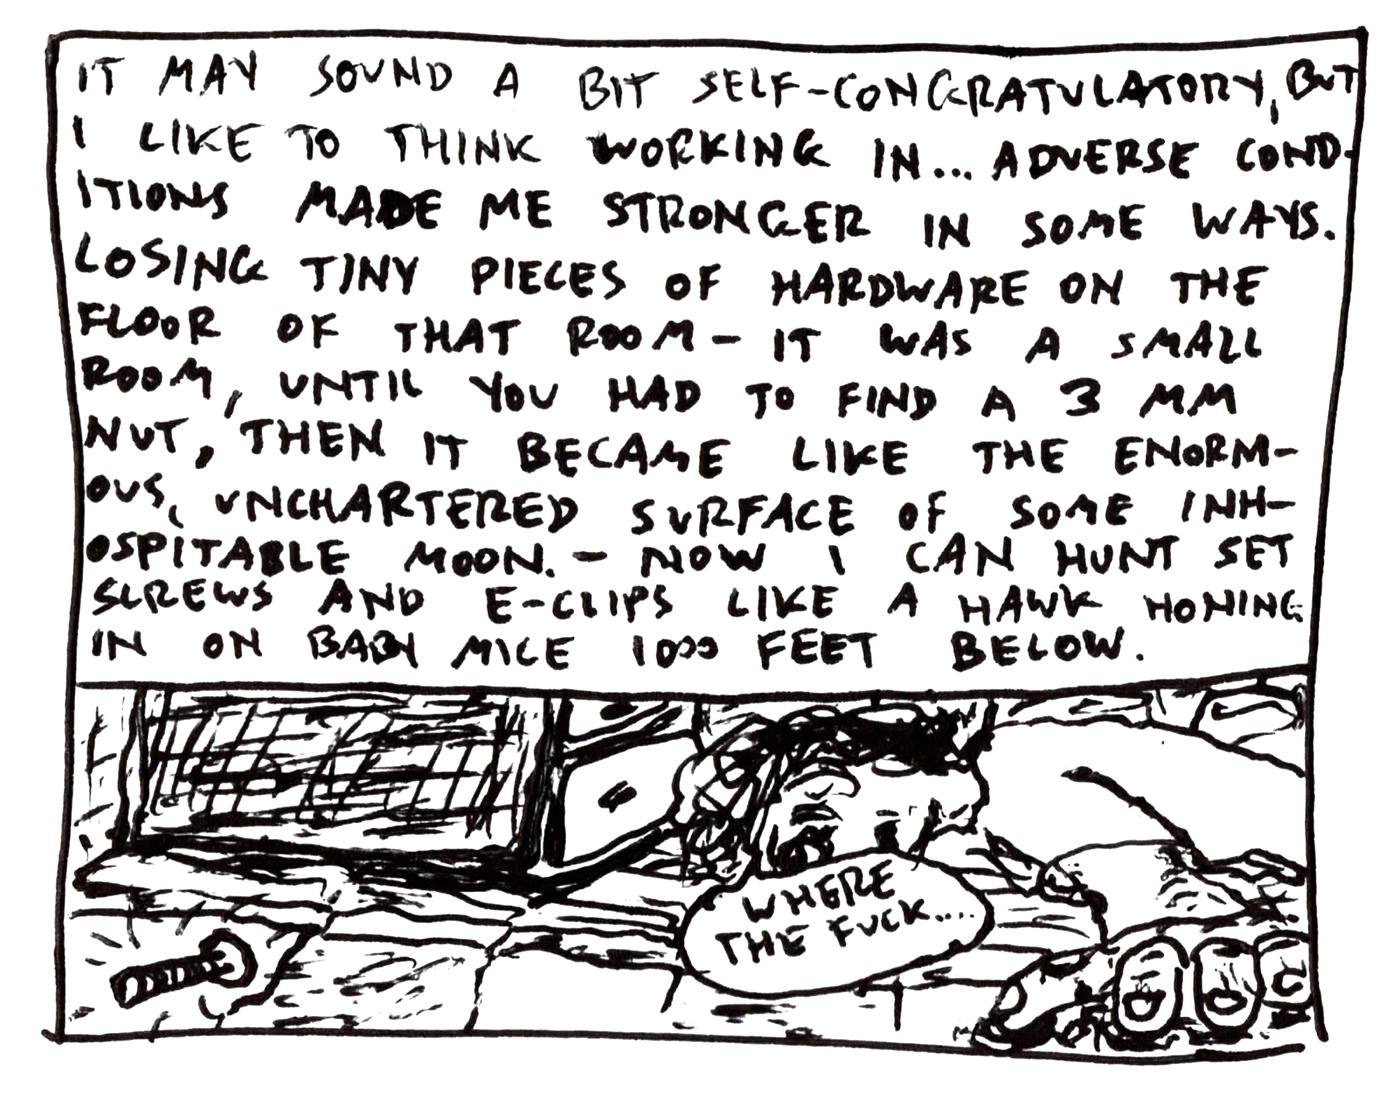 IT MAY SOUND A BIT SELF-CONGRATULATORY, BUT
I LIKE TO THINK WORKING IN... ADVERSE COND-
ITIONS MADE ME STRONGER IN SOME WAYS.
LOSING TINY PIECES OF HARDWARE ON THE
FLOOR OF THAT ROOM - IT WAS A SMALL
ROOM, UNTIL YOU HAD TO FIND A 3 MM
NUT, THEN IT BECAME LIKE THE ENORM-
OUS, UNCHARTERED SURFACE OF SOME INH-
OSPITABLE MOON. - NOW I CAN HUNT SET
SCREWS AND E-CLIPS LIKE A HAWK HONING
IN ON BABY MICE 1000 FEET BELOW.
WHERE
THE FUCK....